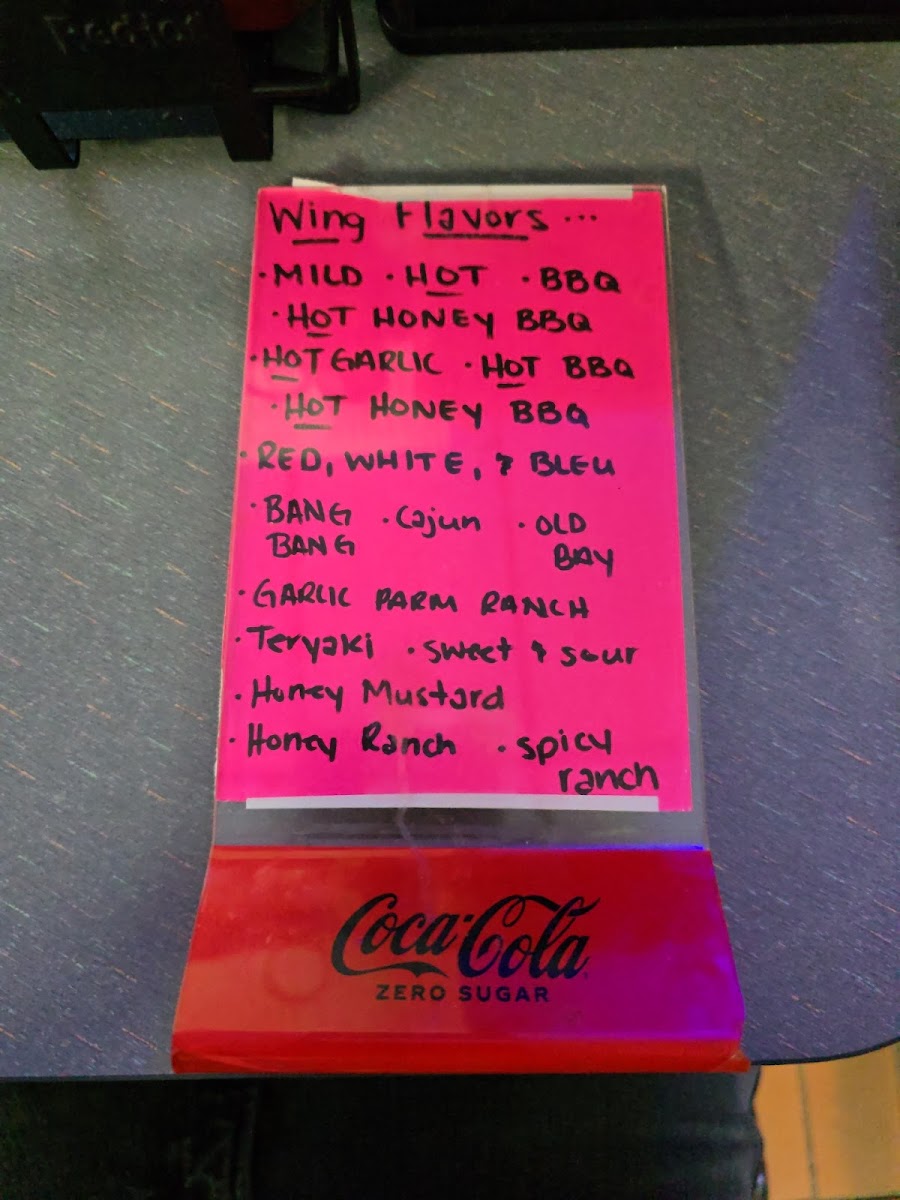 Wing Flavors...
· MILD · HOT · BBQ
· HOT HONEY BBQ
· HOT GARLIC · HOT BBQ
· HOT HONEY BBQ
· RED, WHITE, & BLEU
· BANG BANG · Cajun · OLD BAY
· GARLIC PARM RANCH
· Teryaki · sweet & sour
· Honey Mustard
· Honey Ranch · spicy ranch
Coca-Cola
ZERO SUGAR